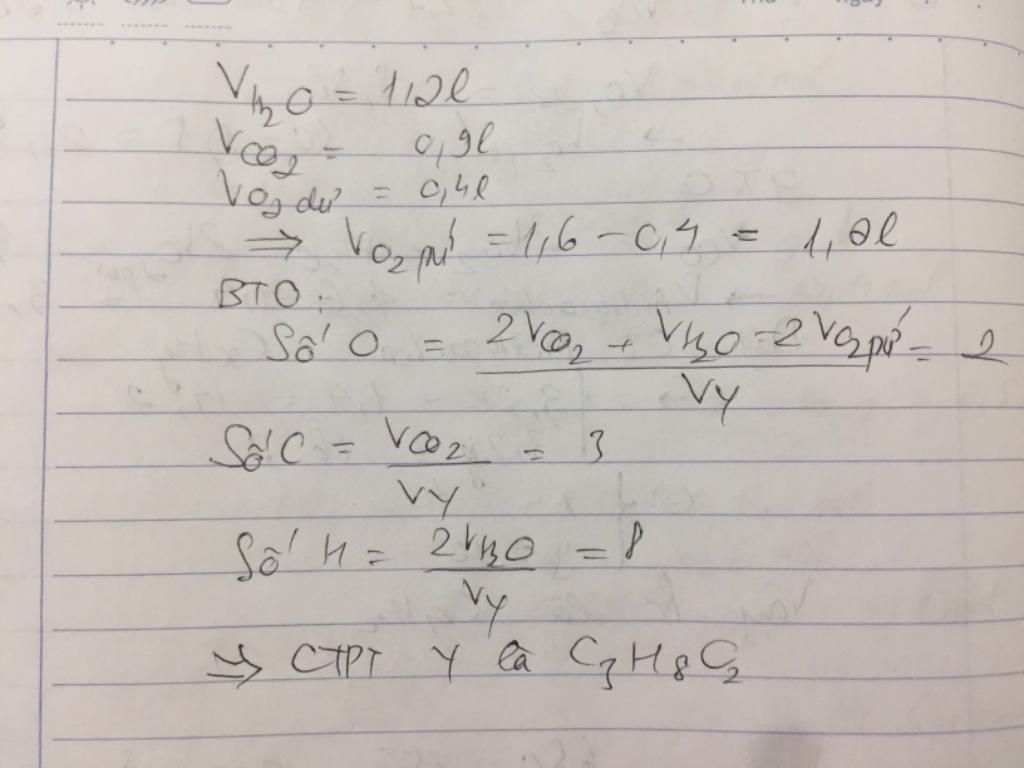 Thứ Ngày
V_H₂O = 1,2l
V_CO₂ = 0,9l
V_O₂ dư = 0,4l
⇒ V_O₂ pứ = 1,6 - 0,4 = 1,2l
BTO :
Số O = (2V_CO₂ + V_H₂O - 2V_O₂pứ) / V_Y = 2
Số C = V_CO₂ / V_Y = 3
Số H = 2V_H₂O / V_Y = 8
⇒ CTPT Y là C₃H₈O₂